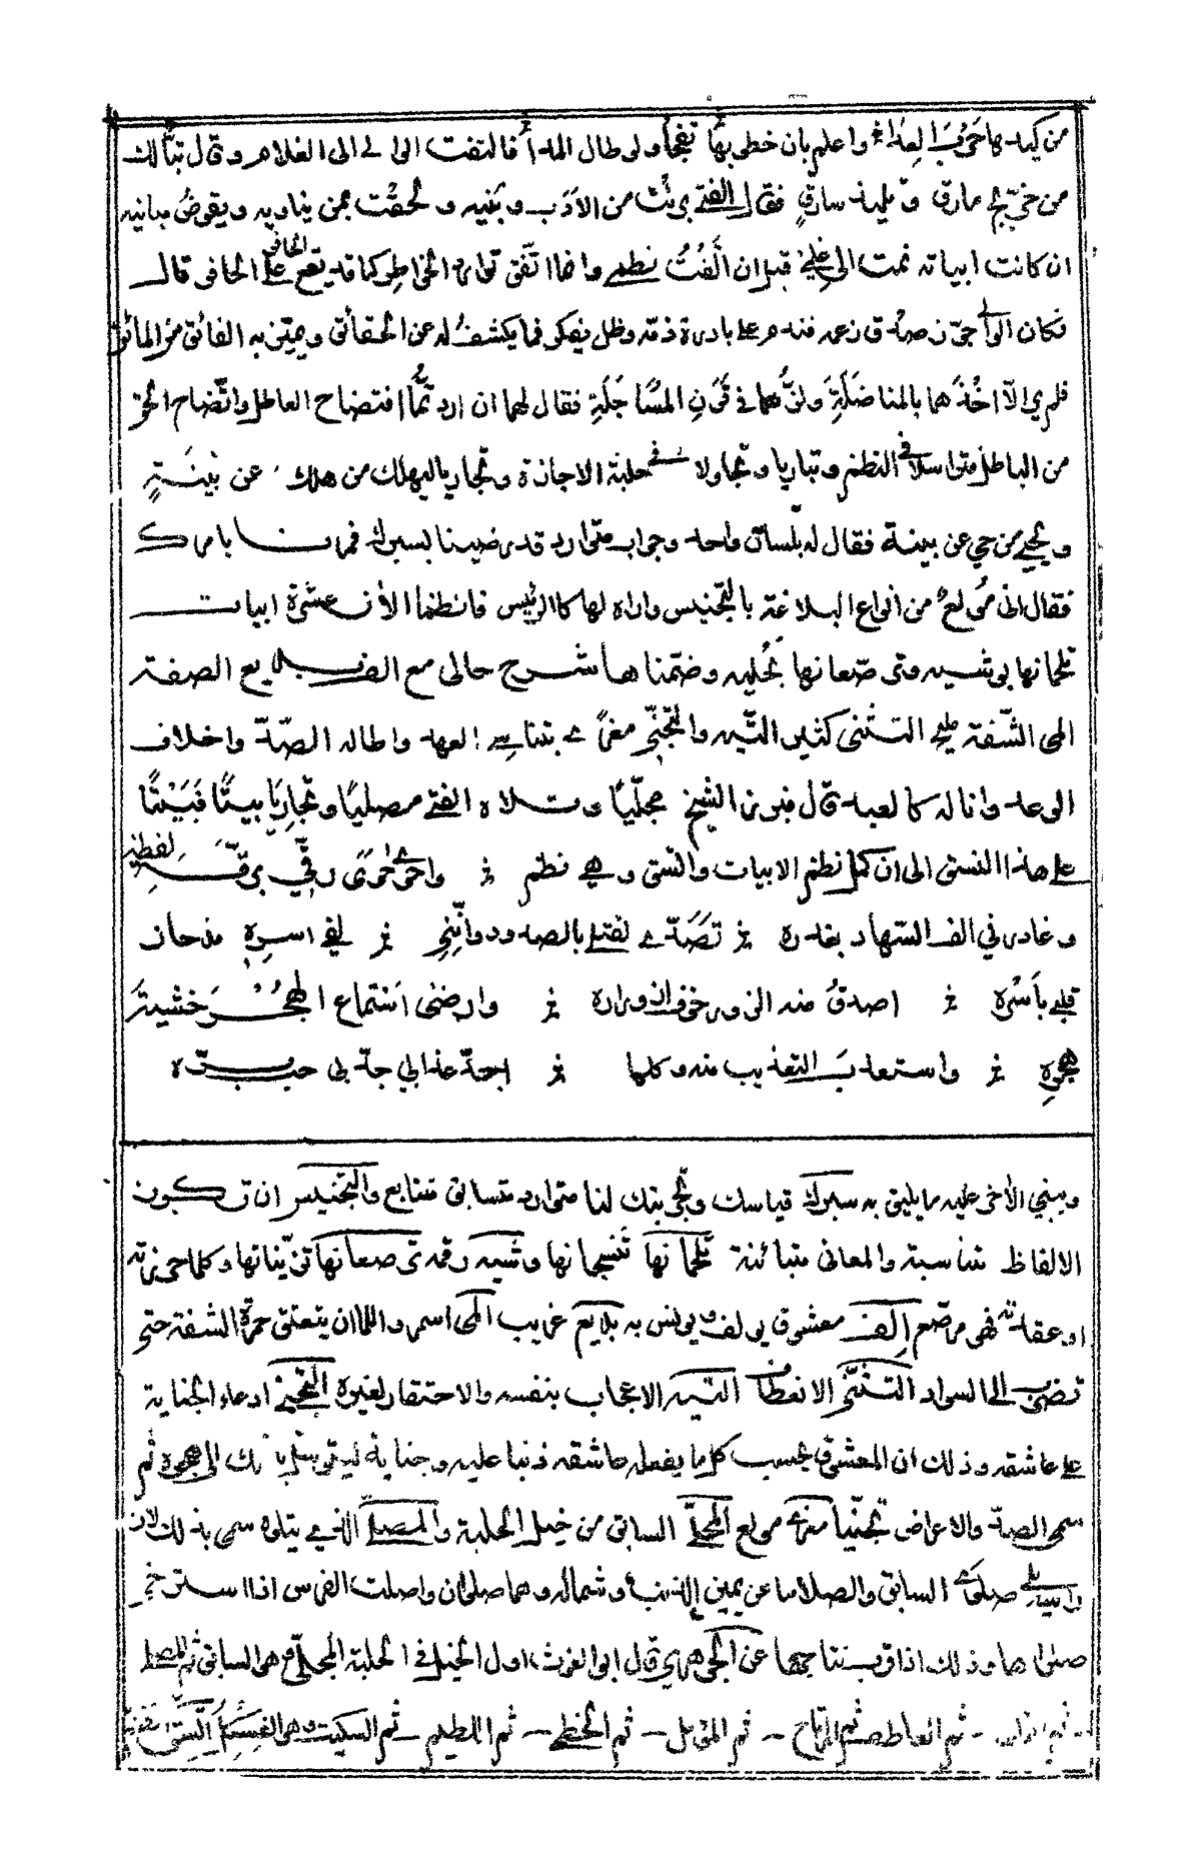 من كيدها حرب العدا واعلم بان خطوبها تفجأ ولو طال المدا فالتفت الوالي الى الغلام وقال تبا لك
من خريج مارق وتلميذ سارق فقال الفتى برئت من الادب وبنيه ولحقت بمن يناويه ويقوض مبانيه
ان كانت ابياته نمت الى علمي قبل ان الفت نظمي وانما اتفق توارد الخواطر كما قد يقع الحافر على الحافر قال
فكان الوالي جوز صدق زعمه فندم على بادرة ذمه وظل يفكر فيما يكشف له عن الحقائق ويميز به الفائق من المائق
فلم ير الا اخذهما بالمناضلة ولزهما في قرن المساجلة فقال لهما ان اردتما افتضاح العاطل واتضاح الحق
من الباطل فتراسلا في النظم وتباريا وتجاولا في حلبة الاجازة وتجاريا ليهلك من هلك عن بينة
ويحيى من حي عن بينة فقالا له بلسان واحد وجواب متوارد قد رضينا بسبرك فمرنا بامرك
فقال اني مولع من انواع البلاغة بالتجنيس واراه لها كالرئيس فانظما الآن عشرة ابيات
تلحمانها بوشيه وترصعانها بحليه وضمناها شرح حالي مع الف بديع الصفة
المى الشفة مليح التثني كثير التيه والتجني مغرى بتناسي العهد واطالة الصد واخلاف
الوعد وانا له كالعبد قال فبرز الشيخ مجليا وتلاه الفتى مصليا وتجاريا بيتا فبيتا
على هذا النسق الى ان كمل نظم الابيات واتسق وهي نظم واحوى حوى رقي برقة لفظه
وغادرني الف السهاد بغدره تصدى لقتلي بالصدود وانني لفي اسره مذ حاز
قلبي باسره اصدق منه الزور خوف ازوراره وارضى استماع الهجر خشية
هجره واستعذب التعذيب منه وكلما اجد عذابي جد بي حب بره
ويبني الآخر عليه ما يليق به سبرك قياسك وتجربتك لنا متوارد متسابق متتابع والتجنيس ان تكون
الالفاظ متناسبة والمعاني متبائنة تلحمانها تنسجانها وشيه رقمه ترصعانها تزينانها وكلما حززته
او عقدته فهو مرصع الف معشوق يولف ويونس به بديع غريب المى اسمر واللما ان يتعلق حمرة الشفة حتى
تضرب الى السواد التثني الانعطاف التيه الاعجاب بنفسه والاحتقار لغيره التجني ادعاء الجناية
على عاشقه وذلك ان المعشوق يحسب كل ما يفعله عاشقه ذنبا عليه وجناية ليتوسل بذلك الى هجره ثم
سمي الصد والاعراض تجنيا مغرى مولع المجلي السابق من خيل الحلبة والمصلي الذي يتلوه سمي بذلك لان
راسه يلي صلوى السابق والصلا ما عن يمين الذنب وشماله وهما صلوان واصلت الفرس اذا استرخى
صلواها وذلك اذا قرب نتاجها عن الجوهري قال ابو الغوث اول الخيل في الحلبة المجلي وهو السابق ثم المصلي
ثم العاطف ثم المرتاح - ثم المؤمل - ثم الحظي - ثم اللطيم - ثم السكيت وهو الفسكل النسق